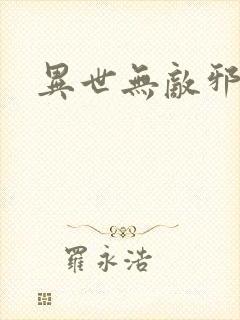 異世無敵邪
羅永浩